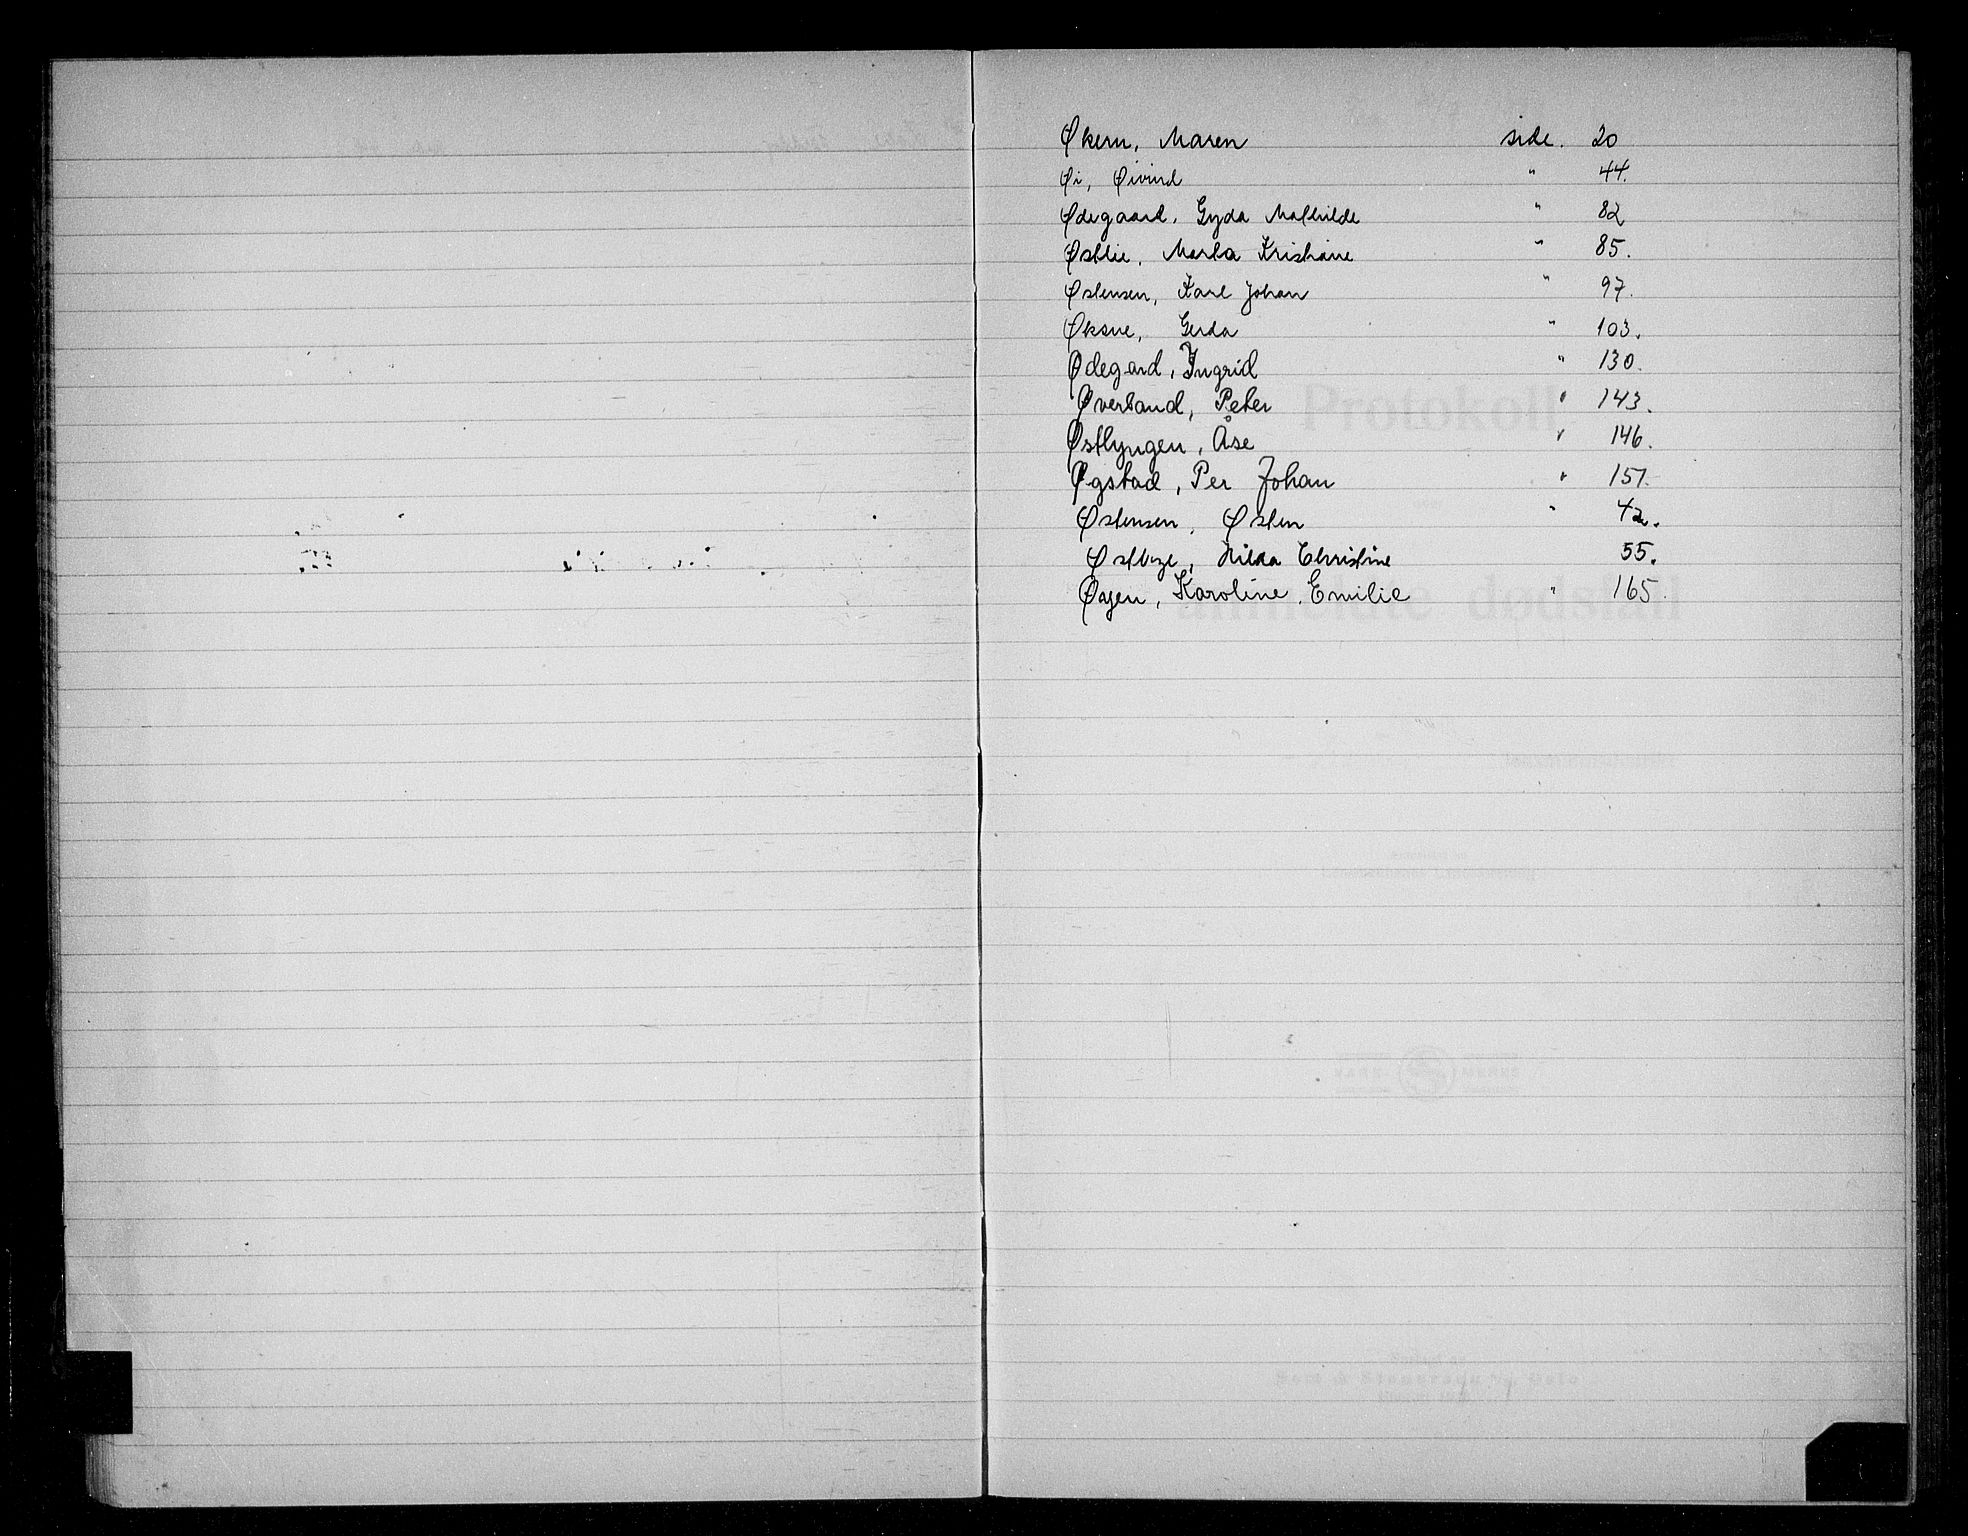 Økern, Maren side. 20
Øi, Øivind " 44.
Ødegaard, Gyda Mathilde " 82
Østlie, Marta Kristiane " 85.
Østensen, Karl Johan " 97.
Øksne, Gerda " 103.
Ødegård, Ingrid " 130.
Øverland, Peter " 143.
Østlyngen, Åse " 146.
Øgstad, Per Johan " 151.
Østensen, Østen " 42.
Hilda Christine 55.
Øyen, Karoline Emilie " 165.
Protokoll
anmeldte dødsfall